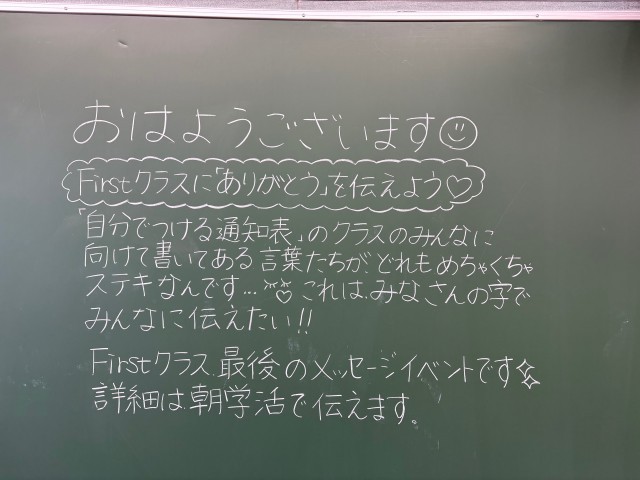 おはようございます
Firstクラスに「ありがとう」を伝えよう♡
「自分でつける通知表」のクラスのみんなに
向けて書いてある言葉たちが、どれもめちゃくちゃ
ステキなんです…♡これは、みなさんの字で
みんなに伝えたい!!
Firstクラス最後のメッセージイベントです
詳細は朝学活で伝えます。